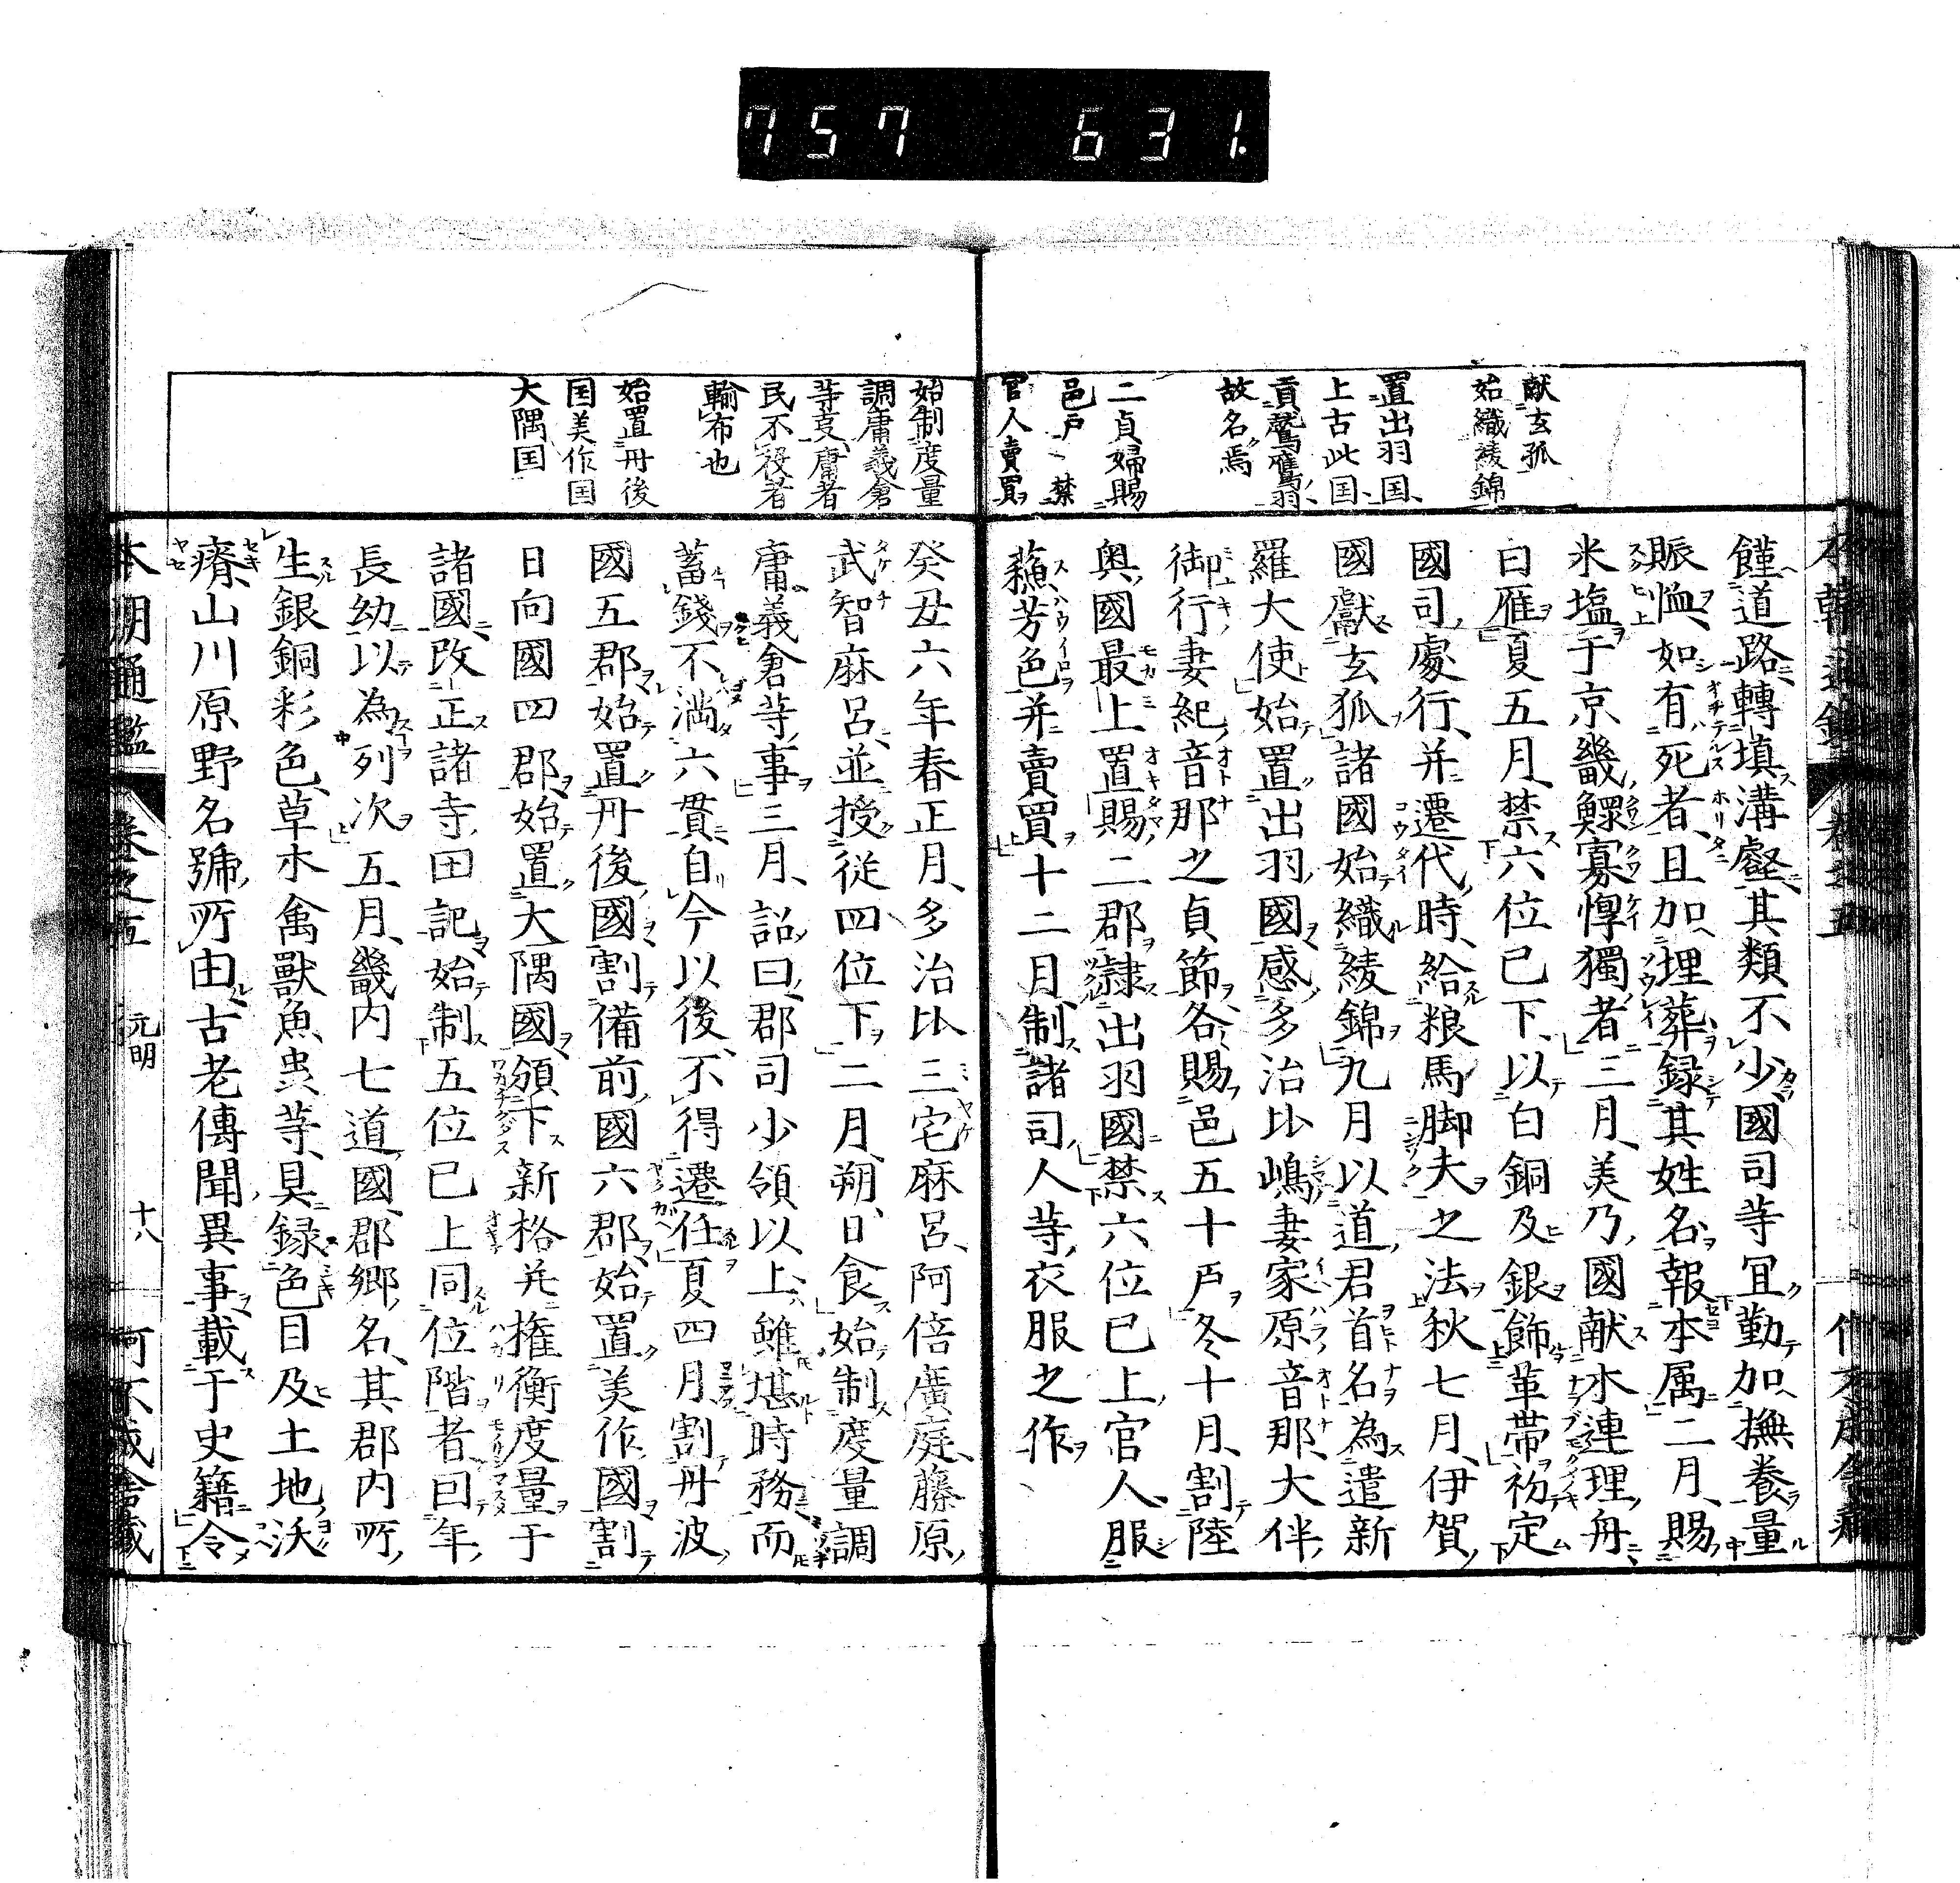 757 631.
献玄狐
始織綾錦
置出羽国
上古此国
貢鷲鷹羽
故名焉
二貞婦賜
邑戸 禁
官人賣買
饉道路轉填溝壑其類不少國司等冝勤加撫養量
賑恤如有死者且加埋葬録其姓名報本属二月賜
米塩于京畿鰥寡惸獨者三月美乃國献木連理舟
曰雁夏五月禁六位已下以白銅及銀飾革帶初定
國司處行并遷代時給粮馬脚夫之法秋七月伊賀
國獻玄狐諸國始織綾錦九月以道君首名為遣新
羅大使始置出羽國感多治比嶋妻家原音那大伴
御行妻紀音那之貞節各賜邑五十戸冬十月割陸
奥國最上置賜二郡隷出羽國禁六位已上官人服
蘓芳色并賣買十二月制諸司人等衣服之作
始制度量
調庸義倉
等㕝庸者
民不役者
輸布也
始置丹後
国美作国
大隅国
癸丑六年春正月多治比三宅麻呂阿倍廣庭藤原
武智麻呂並授従四位下二月朔日食始制度量調
庸義倉等事三月詔曰郡司少領以上雖堪時務而
蓄錢不満六貫自今以後不得遷任夏四月割丹波
國五郡始置丹後國割備前國六郡始置美作國割
日向國四郡始置大隅國頒下新格并権衡度量于
諸國改正諸寺田記始制五位已上同位階者曰年
長幼以為列次五月畿内七道國郡郷名其郡内所
生銀銅彩色草木禽獸魚虫等具録色目及土地沃
瘠山川原野名號所由古老傳聞異事載于史籍令
本朝通鑑 卷之五 元明 十八